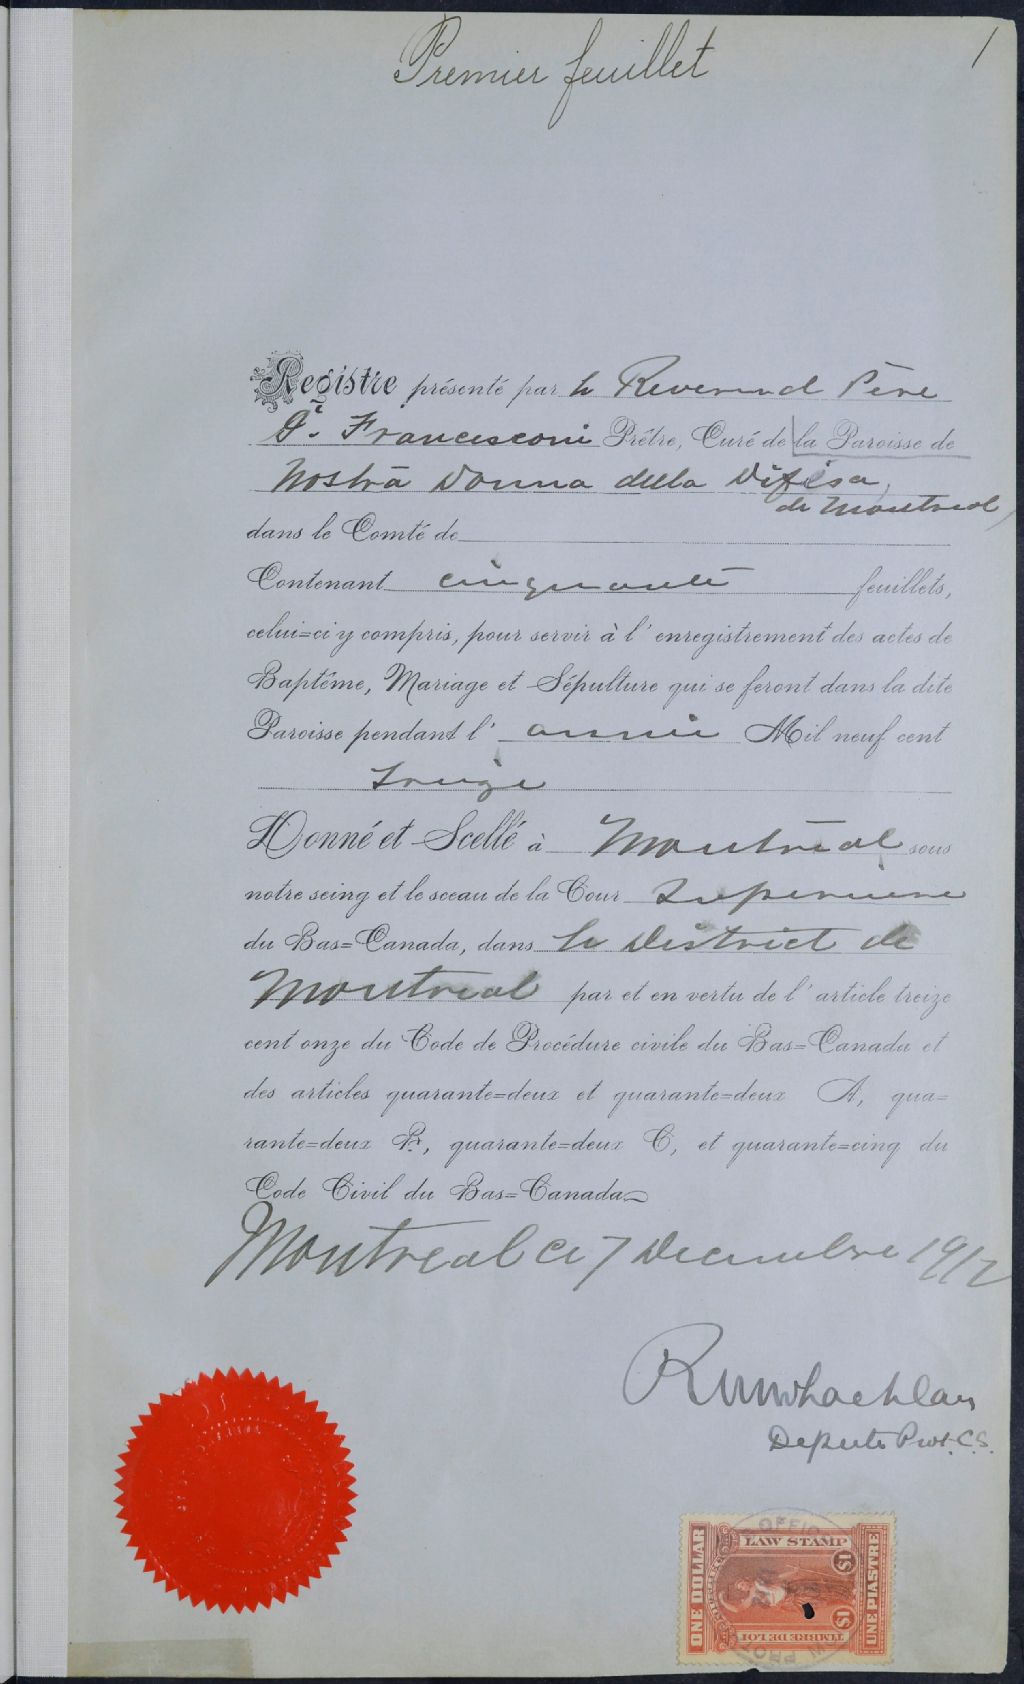 Premier feuillet
1
Registre présenté par le Reverend Père
G. Francesconi Prêtre, Curé de la Paroisse de
Nostra Donna della Difesa,
de Montreal,
dans le Comté de
Contenant cinquante feuillets,
celui=ci y compris, pour servir à l'enregistrement des actes de
Baptême, Mariage et Sépulture qui se feront dans la dite
Paroisse pendant l'année Mil neuf cent
treize
Donné et Scellé à Montréal sous
notre seing et le sceau de la Cour Superieure
du Bas=Canada, dans le District de
Montreal par et en vertu de l'article treize
cent onze du Code de Procédure civile du Bas=Canada et
des articles quarante=deux et quarante=deux A, qua=
rante=deux B, quarante=deux C, et quarante=cinq du
Code Civil du Bas=Canada
Montreal ce 7 Decembre 1912
Depute Prot. C.S.
ONE DOLLAR
LAW STAMP
$1
$1
TIMBRE DE LOI
UNE PIASTRE